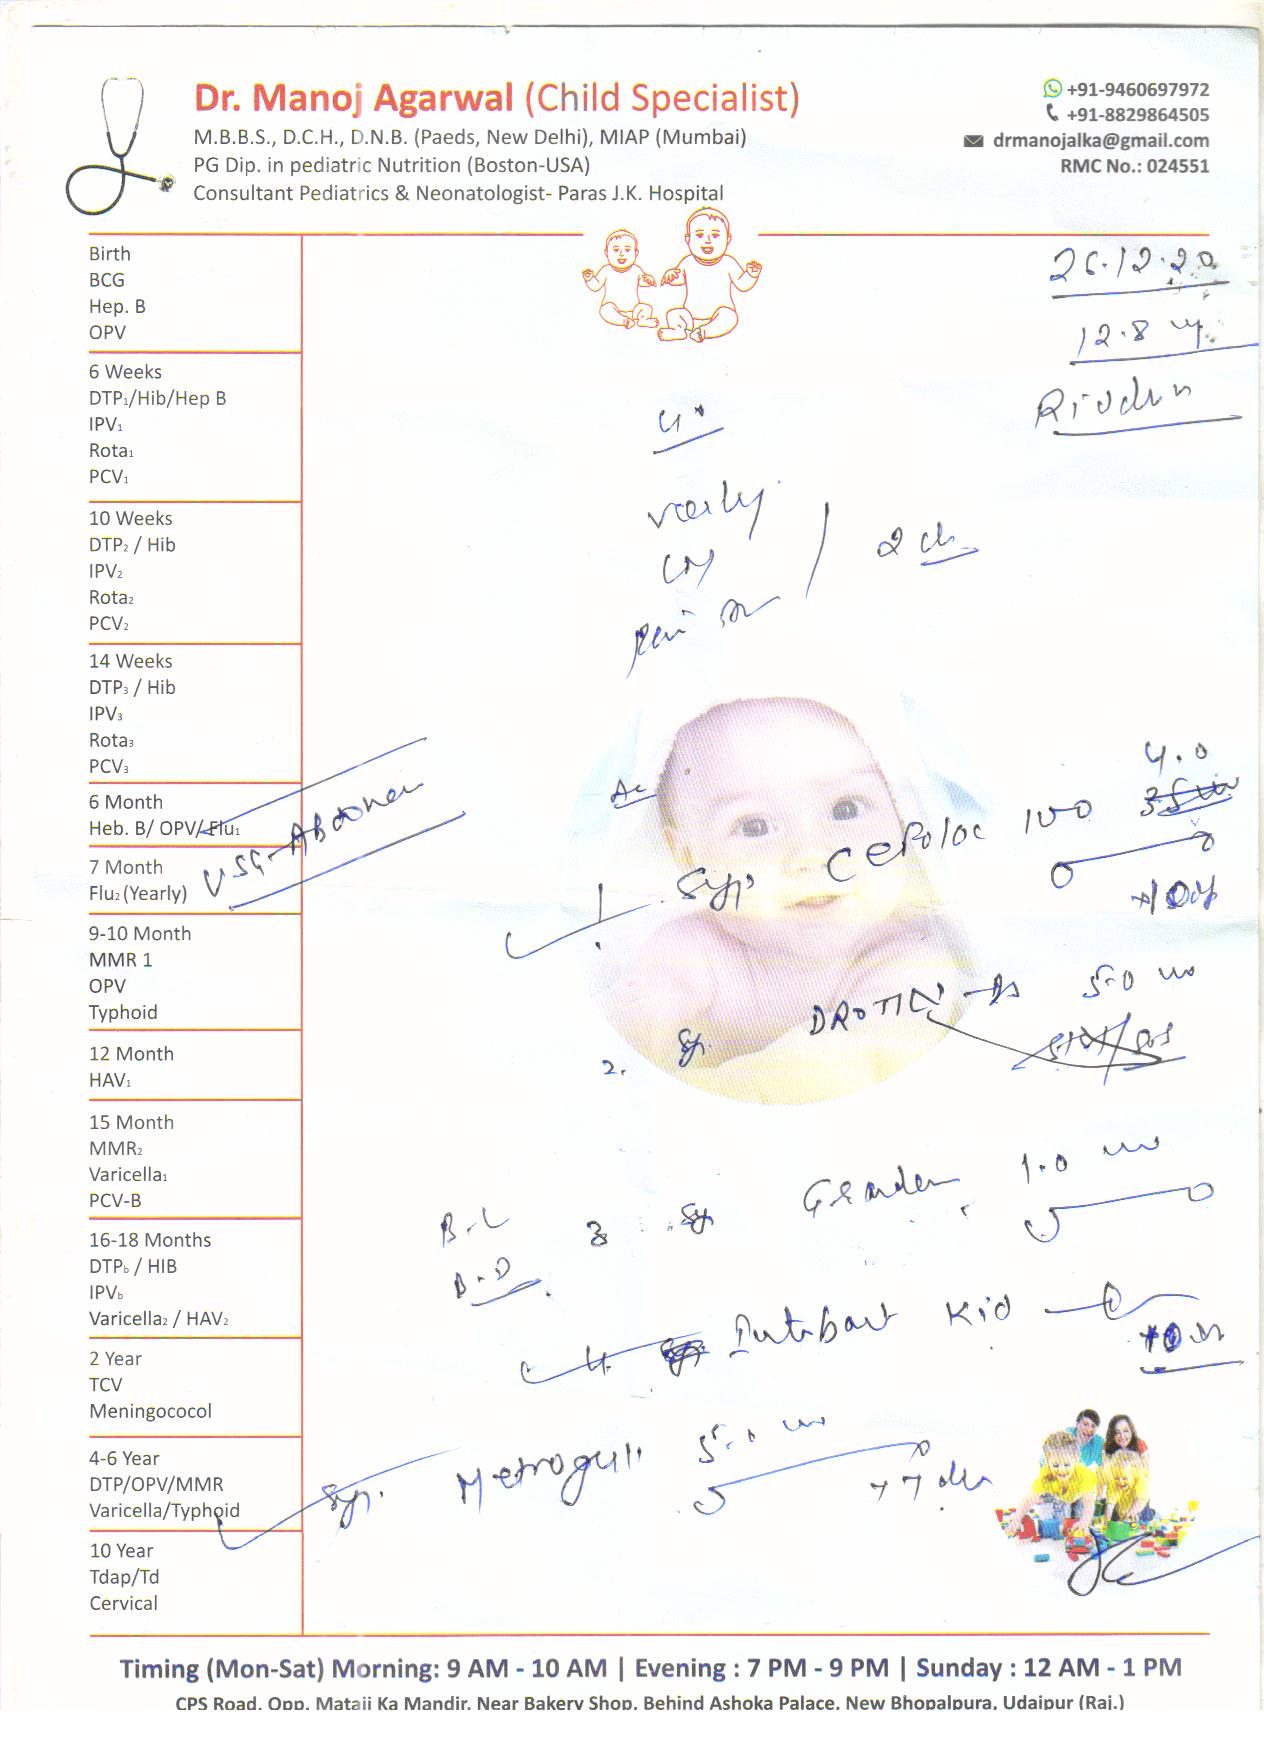 Dr. Manoj Agarwal (Child Specialist)
M.B.B.S., D.C.H., D.N.B. (Paeds, New Delhi), MIAP (Mumbai)
PG Dip. in pediatric Nutrition (Boston-USA)
Consultant Pediatrics & Neonatologist- Paras J.K. Hospital
+91-9460697972
+91-8829864505
drmanojalka@gmail.com
RMC No.: 024551
26.12.20
12.8
Birth
BCG
Hep. B
OPV
6 Weeks
DTP1/Hib/Hep B
IPV1
Rota1
PCV1
10 Weeks
DTP2 / Hib
IPV2
Rota2
PCV2
14 Weeks
DTP3 / Hib
IPV3
Rota3
PCV3
6 Month
Heb. B/ OPV/ Flu1
7 Month
Flu2 (Yearly)
9-10 Month
MMR 1
OPV
Typhoid
12 Month
HAV1
15 Month
MMR2
Varicella1
PCV-B
16-18 Months
DTPb / HIB
IPVb
Varicella2 / HAV2
2 Year
TCV
Meningococol
4-6 Year
DTP/OPV/MMR
Varicella/Typhoid
10 Year
Tdap/Td
Cervical
USG-Abdomen
4.0
1 Syp. Cefoloc 100
2. Sy. DROTIN-DS 5.0
3 Sy 1.0
4. Kid
Syp. Metrogyl 5.0
Timing (Mon-Sat) Morning: 9 AM - 10 AM | Evening : 7 PM - 9 PM | Sunday : 12 AM - 1 PM
CPS Road, Opp. Mataji Ka Mandir, Near Bakery Shop, Behind Ashoka Palace, New Bhopalpura, Udaipur (Raj.)